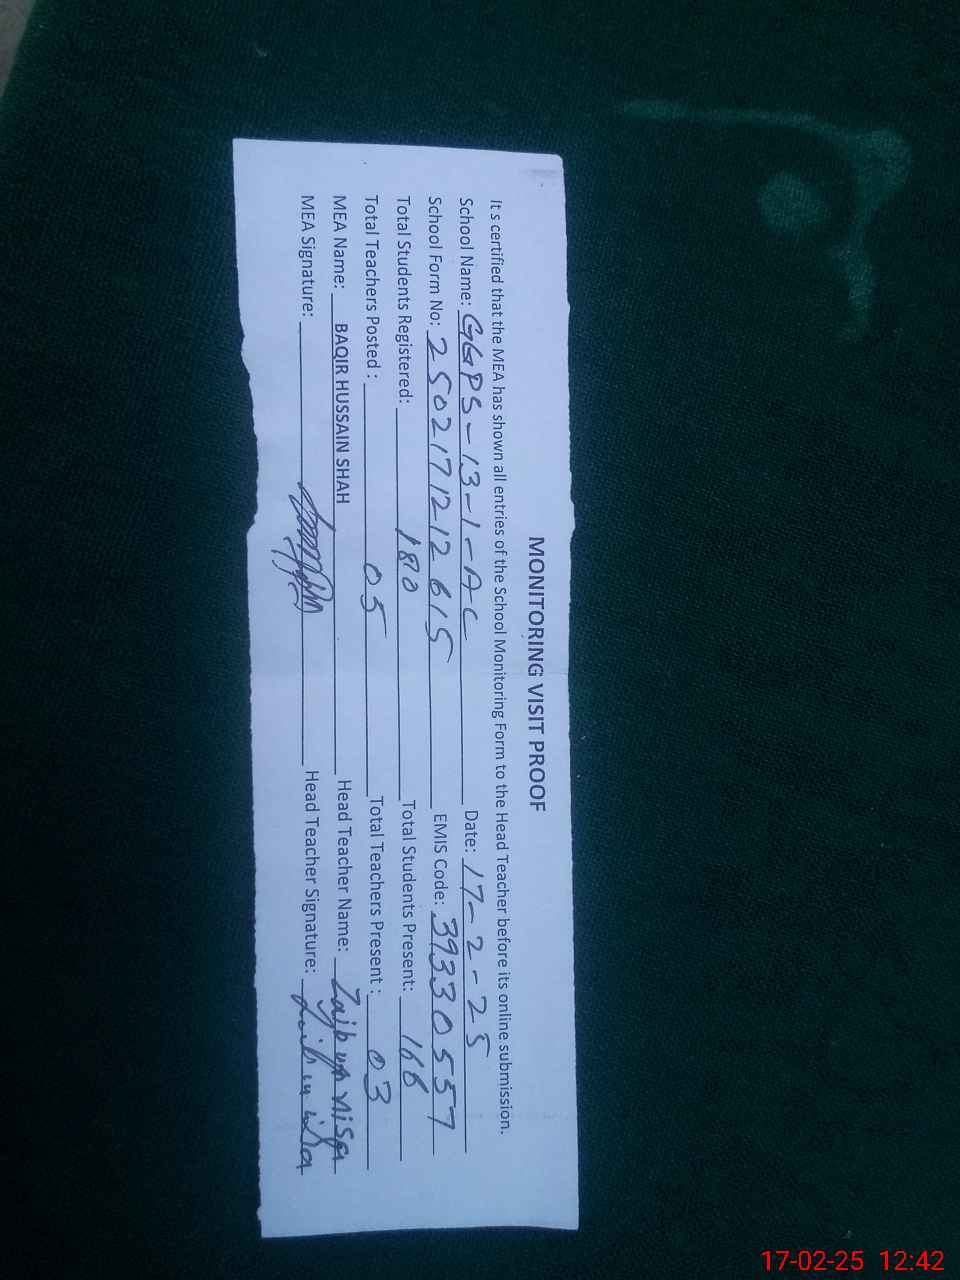 MONITORING VISIT PROOF
It s certified that the MEA has shown all entries of the School Monitoring Form to the Head Teacher before its online submission.
School Name: GGPS-13-1-AL Date: 17-2-25
School Form No: 2502171212615 EMIS Code: 39330557
Total Students Registered: 180 Total Students Present: 166
Total Teachers Posted : 05 Total Teachers Present : 03
MEA Name: BAQIR HUSSAIN SHAH Head Teacher Name: Zaib un nisa
MEA Signature: Head Teacher Signature:
17-02-25 12:42